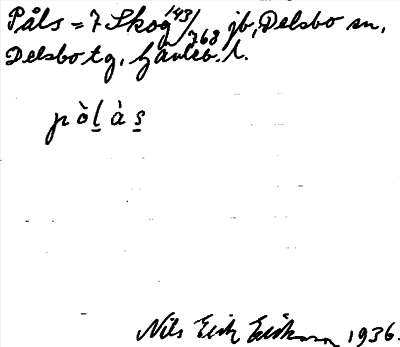 Påls = 7 Skog 143/768 jb, Delsbo sn,
Delsbo tg, Gävleb. l.
pòl̲às̲
Nils Erik Eriksson 1936.